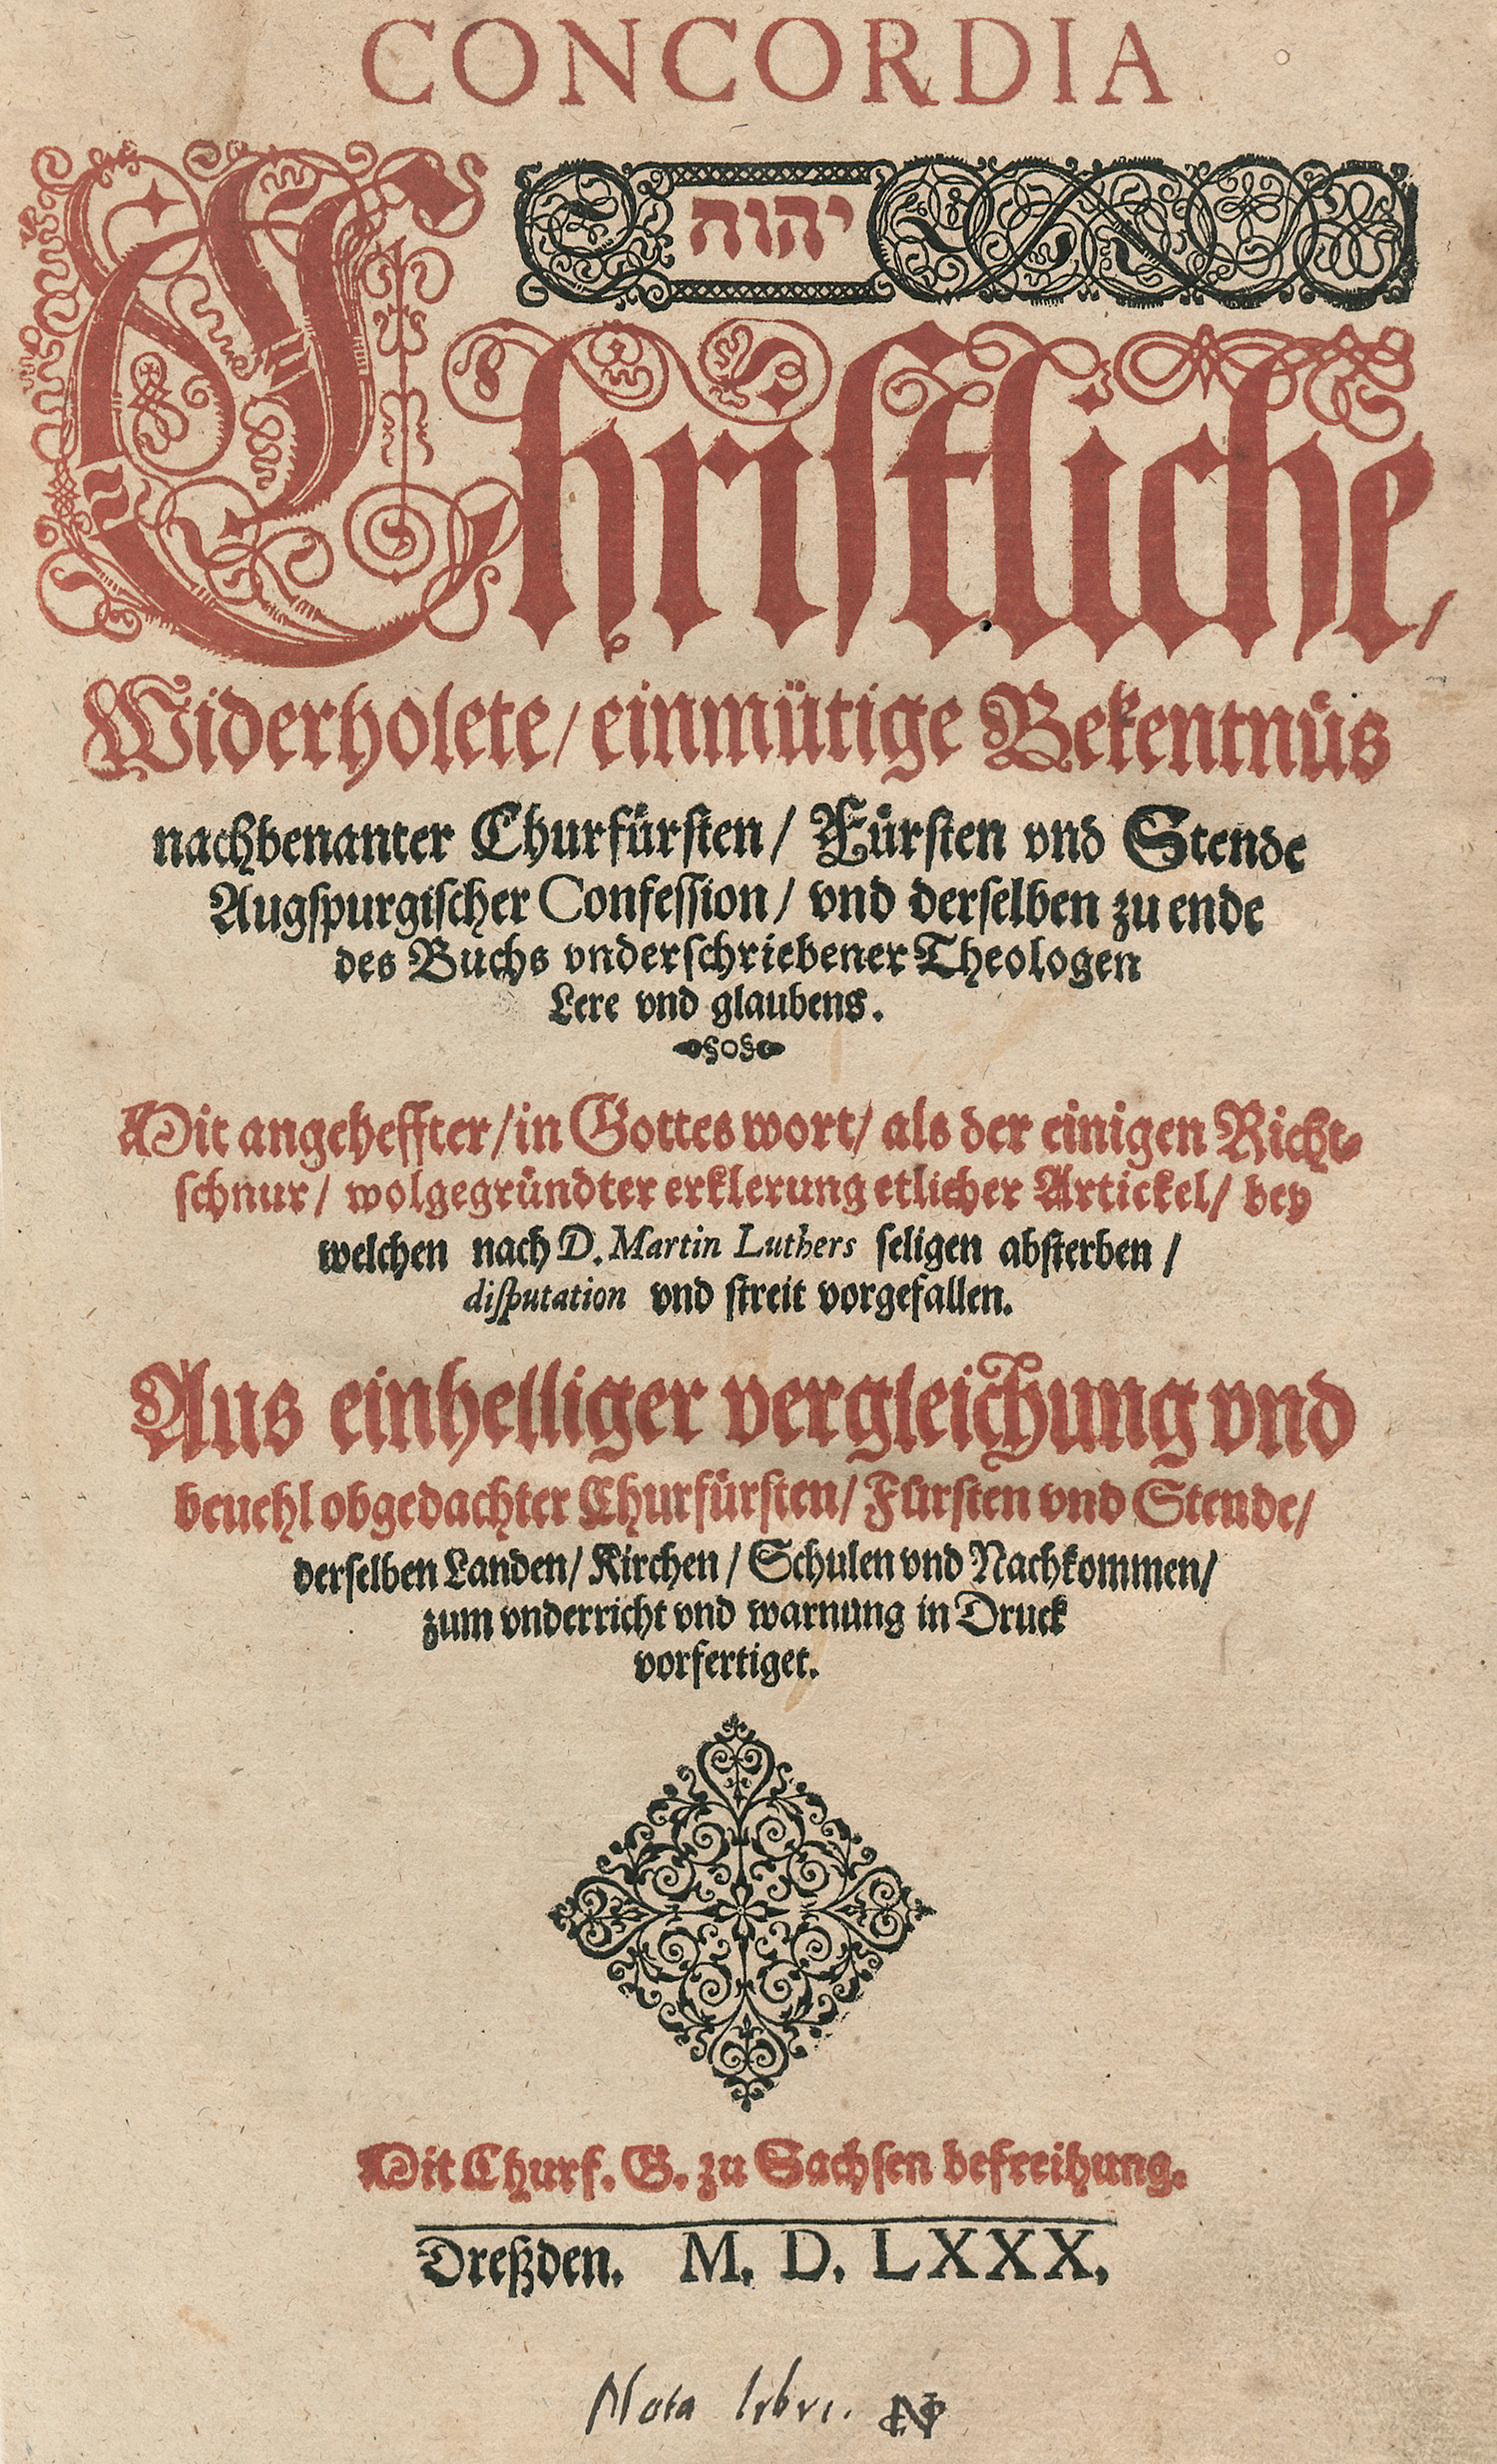 CONCORDIA
יהוה
Chriſtliche,
Widerholete/ einmütige Bekentnüs
nachbenanter Churfürſten/ Fürſten vnd Stende
Augſpurgiſcher Confeſſion/ vnd derſelben zu ende
des Buchs vnderſchriebener Theologen
Lere vnd glaubens.
Mit angeheffter/ in Gottes wort/ als der einigen Richt-
ſchnur/ wolgegründter erklerung etlicher Artickel/ bey
welchen nach D. Martin Luthers ſeligen abſterben/
diſputation vnd ſtreit vorgefallen.
Aus einhelliger vergleichung vnd
beuehl obgedachter Churfürſten/ Fürſten vnd Stende/
derſelben Landen/ Kirchen/ Schulen vnd Nachkommen/
zum vnderricht vnd warnung in Druck
vorfertiget.
Mit Churf. G. zu Sachſen befreihung.
Dreßden. M. D. LXXX.
Nota libri.